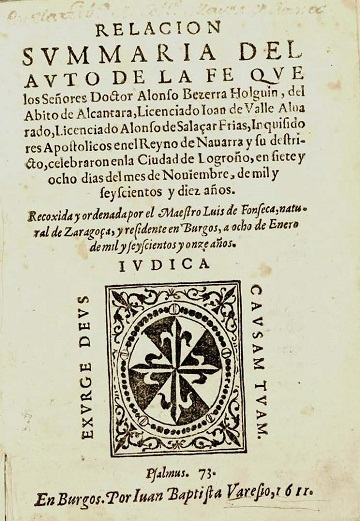 RELACION
SVMMARIA DEL
AVTO DE LA FE QVE
los Señores Doctor Alonso Bezerra Holguin, del
Abito de Alcantara, Licenciado Ioan de Valle Alua
rado, Licenciado Alonso de Salaçar Frias, Inquisido
res Apostolicos en el Reyno de Nauarra y su destri-
cto, celebraron en la Ciudad de Logroño, en siete y
ocho dias del mes de Nouiembre, de mil y
seyscientos y diez años.
Recoxida y ordenada por el Maestro Luis de Fonseca, natu-
ral de Zaragoça, y residente en Burgos, a ocho de Enero
de mil y seyscientos y onze años.
IVDICA
EXVRGE DEVS
CAVSAM TVAM.
Psalmus. 73.
En Burgos. Por Iuan Baptista Varesio, 1611.